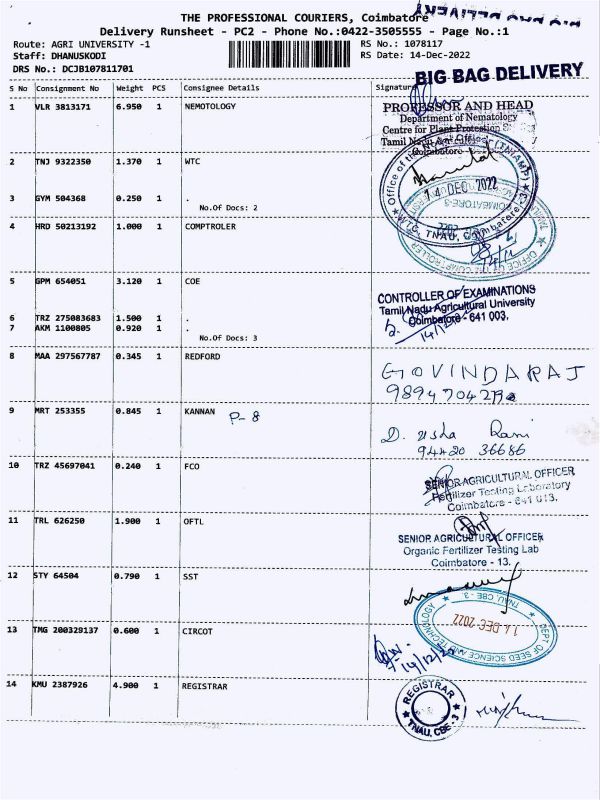 BIG BAG DELIVERY
THE PROFESSIONAL COURIERS, Coimbatore
Delivery Runsheet - PC2 - Phone No.:0422-3505555 - Page No.:1
Route: AGRI UNIVERSITY -1
RS No.: 1078117
Staff: DHANUSKODI
RS Date: 14-Dec-2022
DRS No.: DCJB107811701
BIG BAG DELIVERY
S No Consignment No Weight PCS Consignee Details Signature
1 VLR 3813171 6.950 1 NEMOTOLOGY
PROFESSOR AND HEAD
Department of Nematology
Centre for Plant Protection
Tamil Nadu
Coimbatore
2 TNJ 9322350 1.370 1 WTC
Office of the
14 DEC 2022
WTC, TNAU, Coimbatore-3
3 GYM 504368 0.250 1 .
No.Of Docs: 2
4 HRD 50213192 1.000 1 COMPTROLER
OFFICE OF THE COMPTROLLER
5 GPM 654051 3.120 1 COE
CONTROLLER OF EXAMINATIONS
Tamil Nadu Agricultural University
Coimbatore - 641 003.
6 TRZ 275083683 1.500 1 .
7 AKM 1100805 0.920 1 .
No.Of Docs: 3
8 MAA 297567787 0.345 1 REDFORD
GOVINDARAJ
9 MRT 253355 0.845 1 KANNAN P-8
D. Usha Rani
94420 36686
10 TRZ 45697041 0.240 1 FCO
SENIOR AGRICULTURAL OFFICER
Fertilizer Testing Laboratory
Coimbatore - 641 013.
11 TRL 626250 1.900 1 OFTL
SENIOR AGRICULTURAL OFFICER
Organic Fertilizer Testing Lab
Coimbatore - 13.
12 STY 64504 0.790 1 SST
TNAU, CBE - 3
14 DEC 2022
DEPT OF SEED SCIENCE AND TECHNOLOGY
13 TMG 200329137 0.600 1 CIRCOT
14/12/22
14 KMU 2387926 4.900 1 REGISTRAR
REGISTRAR
TNAU, CBE-3